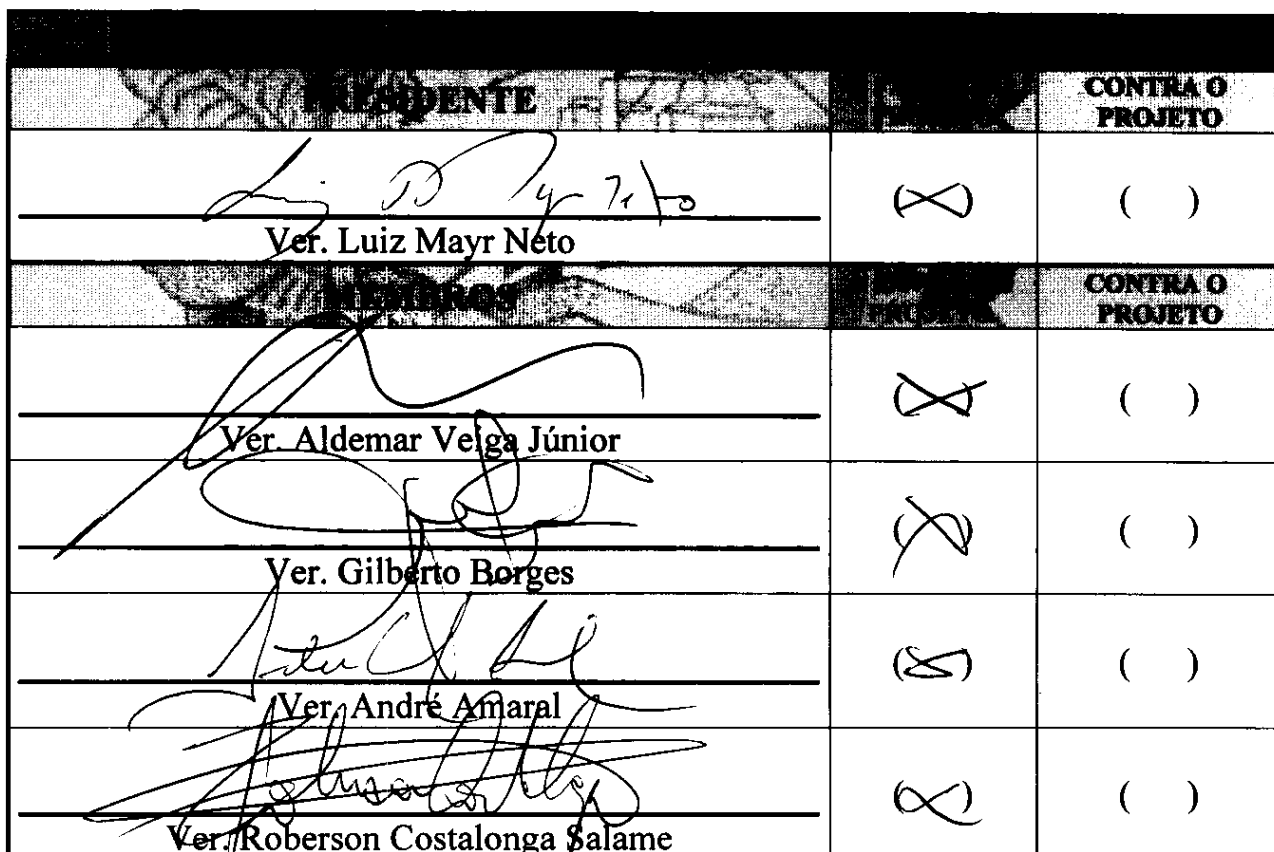 PRESIDENTE CONTRA O PROJETO
Ver. Luiz Mayr Neto (X) ( )
MEMBROS PROJETO CONTRA O PROJETO
Ver. Aldemar Veiga Júnior (X) ( )
Ver. Gilberto Borges (X) ( )
Ver. André Amaral (X) ( )
Ver. Roberson Costalonga Salame (X) ( )